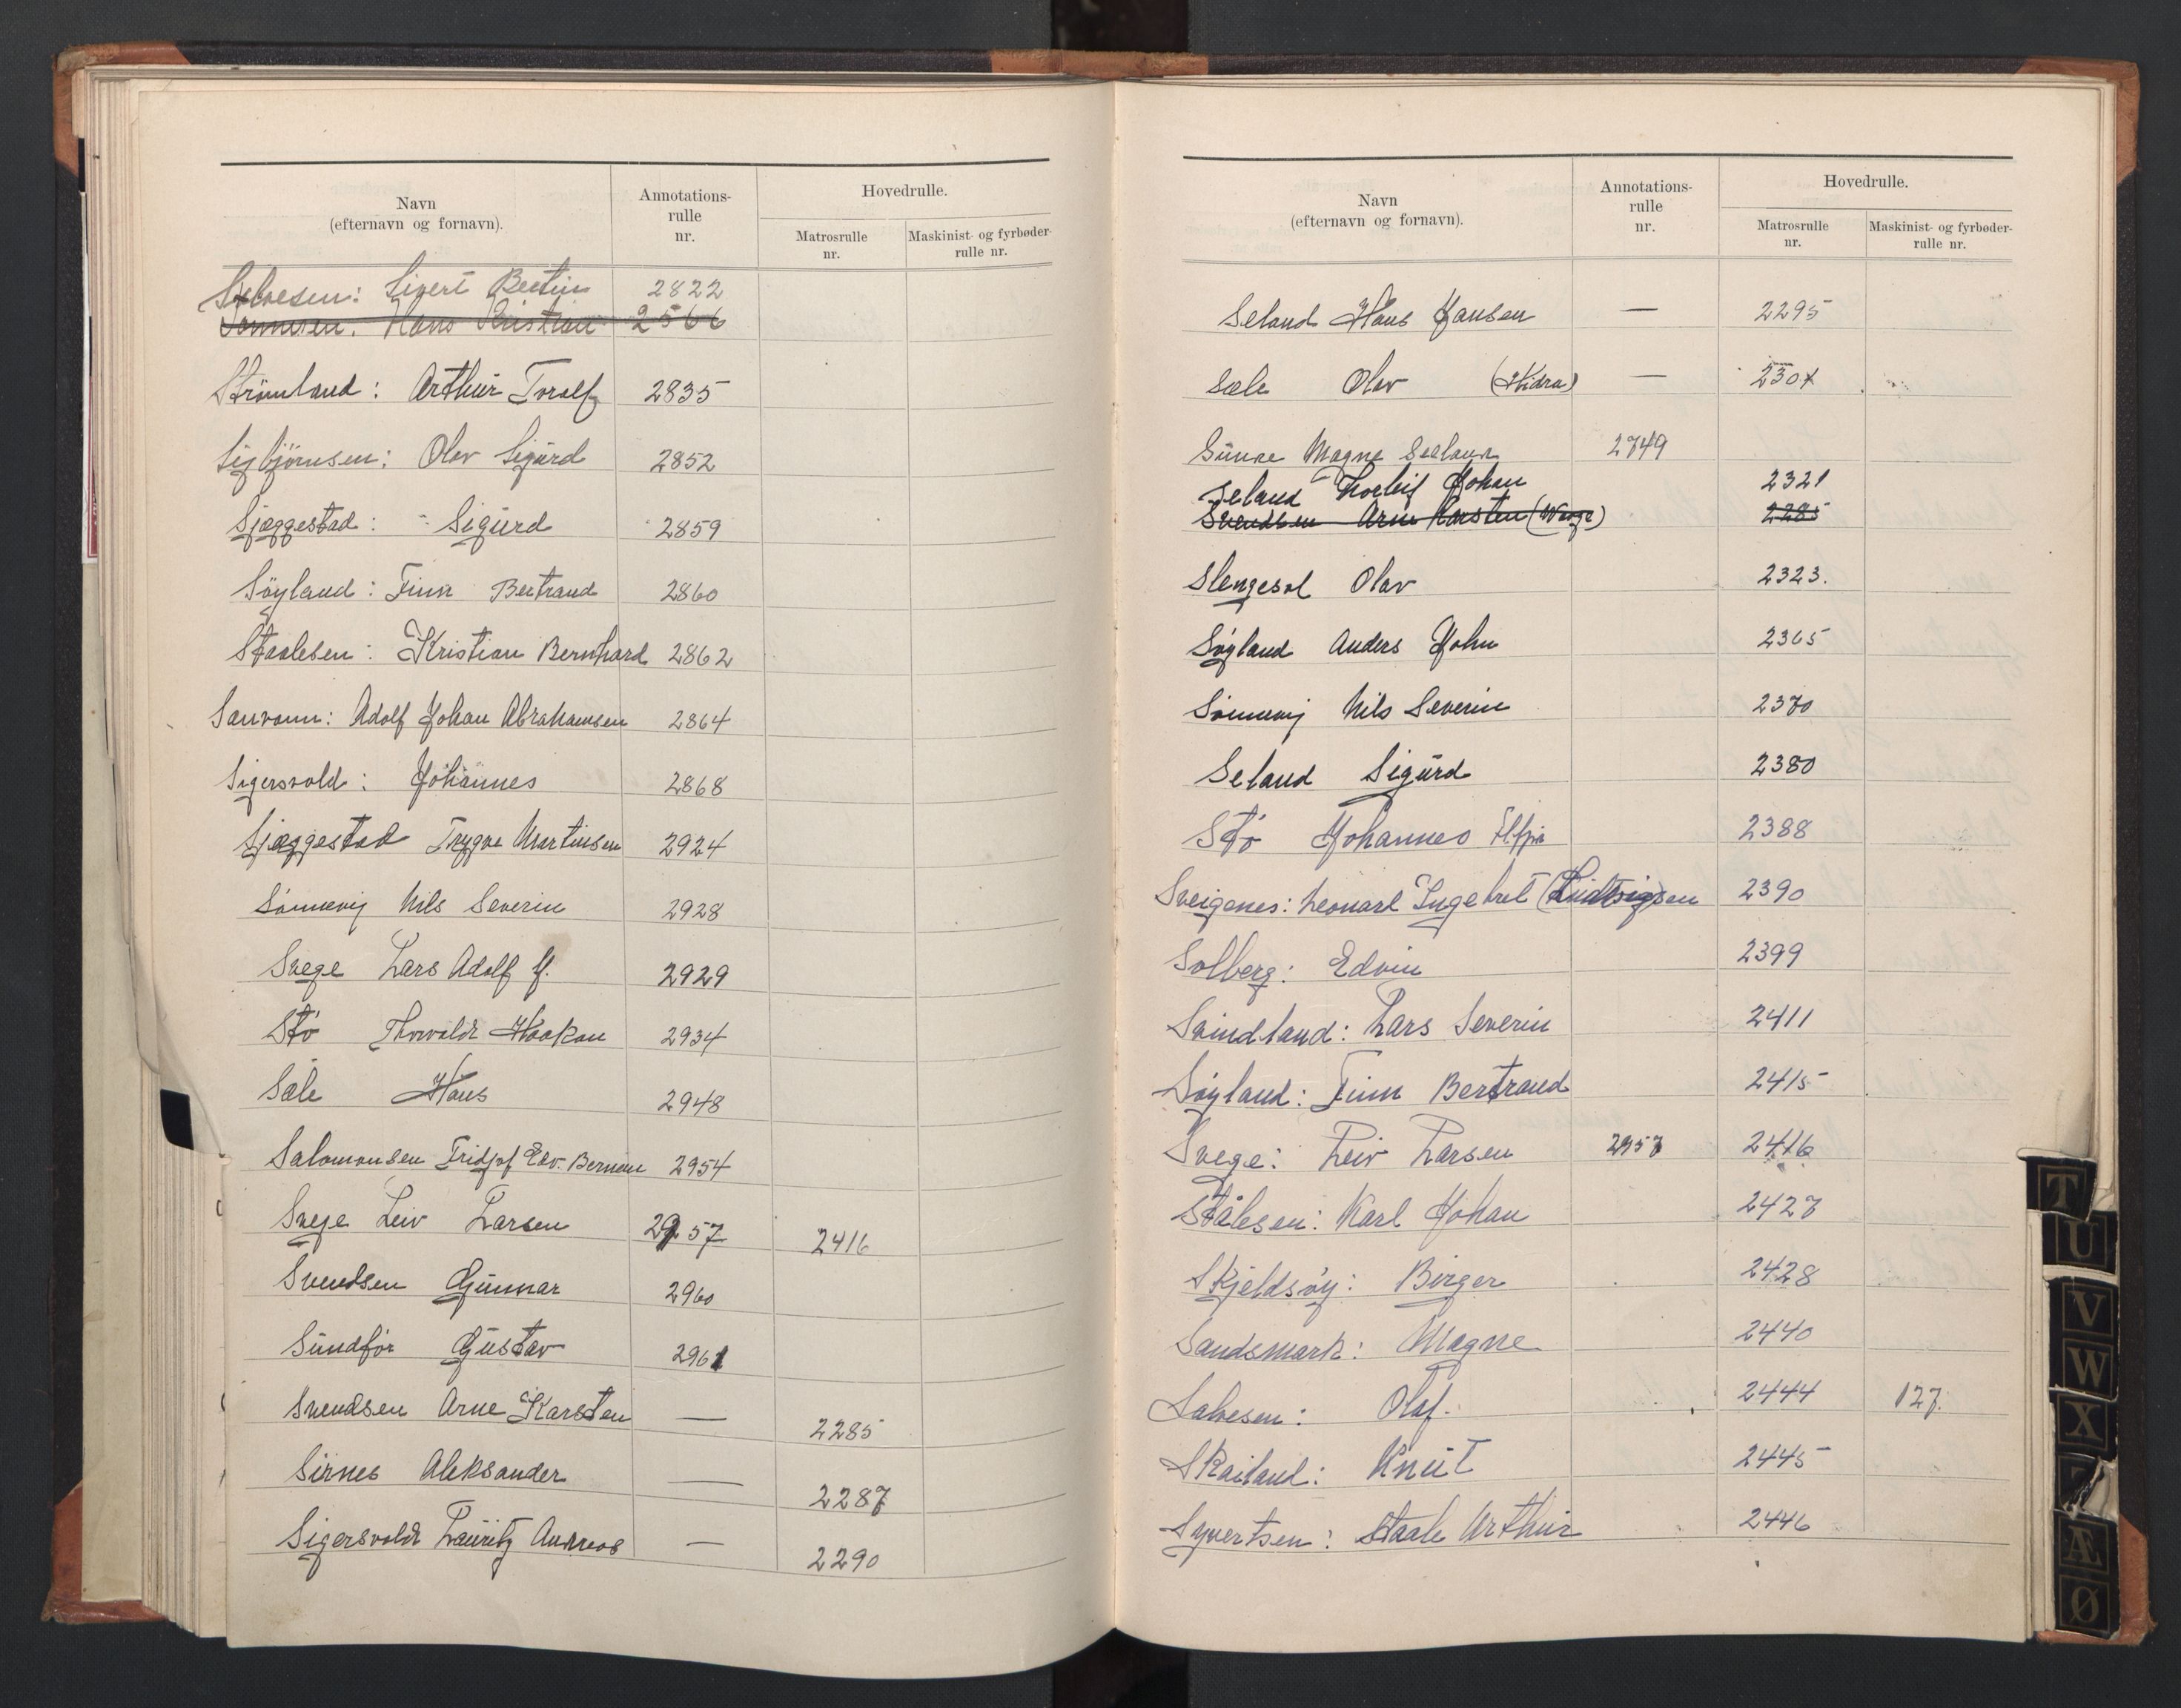 Navn
(efternavn og fornavn).
Annotations-
rulle
nr.
Hovedrulle.
Matrosrulle
nr.
Maskinist- og fyrbøder-
rulle nr.
Sivert Bertin 2822
Hans Kristian 2566
Strömland: Arthur Toralf 2835
Sigbjörnsen: Olav Sigurd 2852
Sjæggestad: Sigurd 2859
Söyland: Finn Bertrand 2860
Staalesen: Kristian Bernhard 2862
Sanvann: Adolf Johan Abrahamsen 2864
Sigersvold: Johannes 2868
Sjæggestad Trygve Martinsen 2924
Sönnevig Nils Severin 2928
Svege Lars Adolf J. 2929
Stö Thorvald Haakon 2934
Sæle Hans 2948
Salomonsen Fridjof Edv. 2954
Svege Leiv Larsen 2957 2416
Svendsen Gunnar 2960
Sundför Gustav 2961
Svendsen Arne Karsten — 2285
Sirnes Aleksander — 2287
Sigersvold Lauritz Andreas — 2290
Navn
(efternavn og fornavn).
Annotations-
rulle
nr.
Hovedrulle.
Matrosrulle
nr.
Maskinist- og fyrbøder-
rulle nr.
Seland Hans Jansen — 2295
Sæle Olav (Hidra) — 2304
Sunde Magne Seeland 2749
Seland Thorleif Johan 2321
Svendsen Arne Karsten 2285
Slengesol Olav 2323.
Söyland Anders John 2365
Sönnevig Nils Severin 2370
Seland Sigurd 2380
Stö Johannes 2388
Sveigenes: Leonard Ingebret (Ludvigsen 2390
Solberg: Edvin 2399
Svindland: Lars Severin 2411
Söyland: Finn Bertrand 2415
Svege: Leiv Larsen 2957 2416
Stålesen: Karl Johan 2427
Skjeldsöy: Birger 2428
Sandsmark: Magne 2440
Salvesen: Olaf. 2444 127.
Skailand: Knut 2445
Syvertsen: Staale Arthur 2446
T
U
V
W
X
Æ
Ø